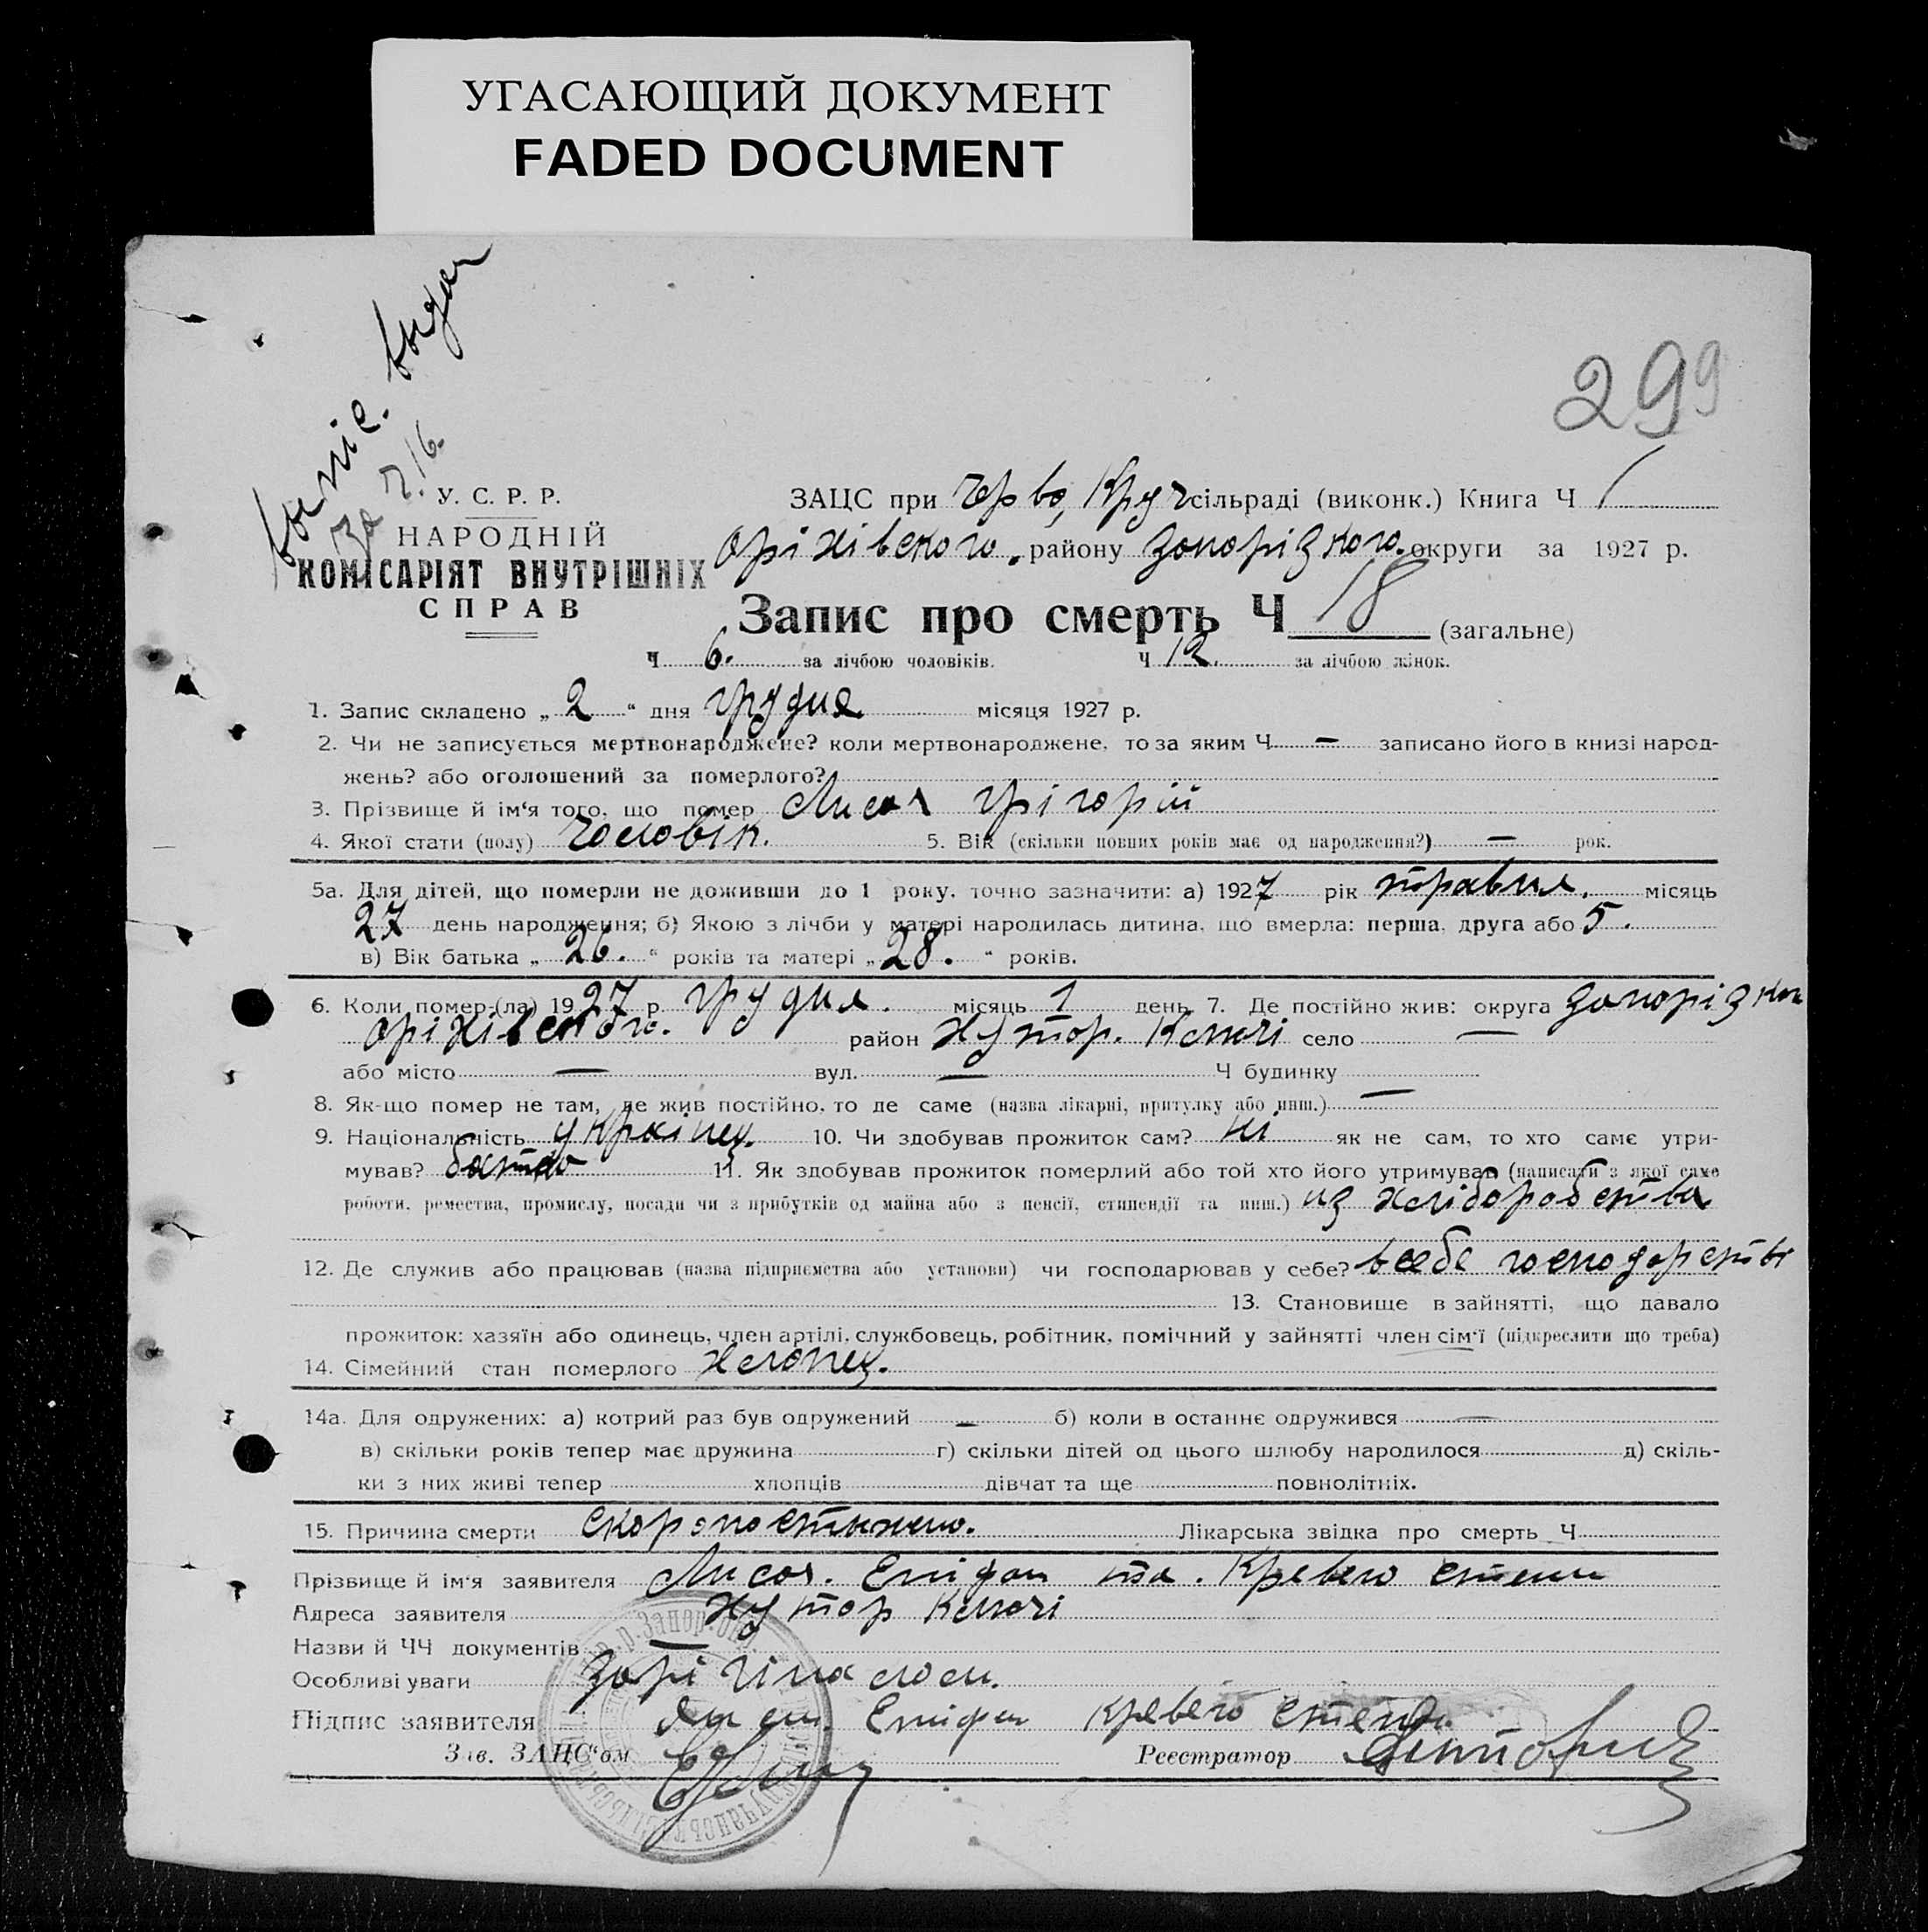 УГАСАЮЩИЙ ДОКУМЕНТ
FADED DOCUMENT
299
випис. видан
за ч. 16.
У. С. Р. Р.
НАРОДНІЙ
КОМІСАРІЯТ ВНУТРІШНІХ
СПРАВ
ЗАЦС при Черво, Круч сільраді (виконк.) Книга Ч 1
Оріхівского. району Запорізкого. округи за 1927 р.
Запис про смерть Ч 18 (загальне)
Ч 6. за лічбою чоловіків. Ч 12. за лічбою жінок.
1. Запис складено „ 2 “ дня грудня місяця 1927 р.
2. Чи не записується мертвонароджене? коли мертвонароджене, то за яким Ч — записано його в книзі народ-
жень? або оголошений за померлого?
3. Прізвище й ім‘я того, що помер Григорій
4. Якої стати (полу) Чоловік. 5. Вік (скільки повних років має од народження?) — рок.
5а. Для дітей, що померли не доживши до 1 року, точно зазначити: а) 1927 рік травня. місяць
27 день народження; б) Якою з лічби у матері народилась дитина, що вмерла: перша, друга або 5.
в) Вік батька „ 26. “ років та матері „ 28. “ років.
6. Коли помер-(ла) 1927 р. грудня. місяць 1 день 7. Де постійно жив: округа Запорізког
Оріхівского. район Хутор. Ключі село —
або місто — вул. — Ч будинку
8. Як-що помер не там, де жив постійно, то де саме (назва лікарні, притулку або инш.) —
9. Національність Українец. 10. Чи здобував прожиток сам? ні як не сам, то хто саме утри-
мував? батько 11. Як здобував прожиток померлий або той хто його утримував (написати з якої саме
роботи, ремества, промислу, посади чи з прибутків од майна або з пенсії, стипендії та инш.) из хліборобства
12. Де служив або працював (назва підприємства або установи) чи господарював у себе? в себе господарстві
13. Становище в зайнятті, що давало
прожиток: хазяїн або одинець, член артілі, службовець, робітник, помічний у зайнятті член сім‘ї (підкреслити що треба)
14. Сімейний стан померлого хлопец.
14а. Для одружених: а) котрий раз був одружений — б) коли в останнє одружився —
в) скільки років тепер має дружина г) скільки дітей од цього шлюбу народилося д) скіль-
ки з них живі тепер хлопців дівчат та ще повнолітніх.
15. Причина смерти скоропостижно. Лікарська звідка про смерть Ч
Прізвище й ім‘я заявителя та
Адреса заявителя хутор Ключі
Назви й ЧЧ документів —
Особливі уваги
Підпис заявителя
Зав. ЗАЦС‘ом Реєстратор